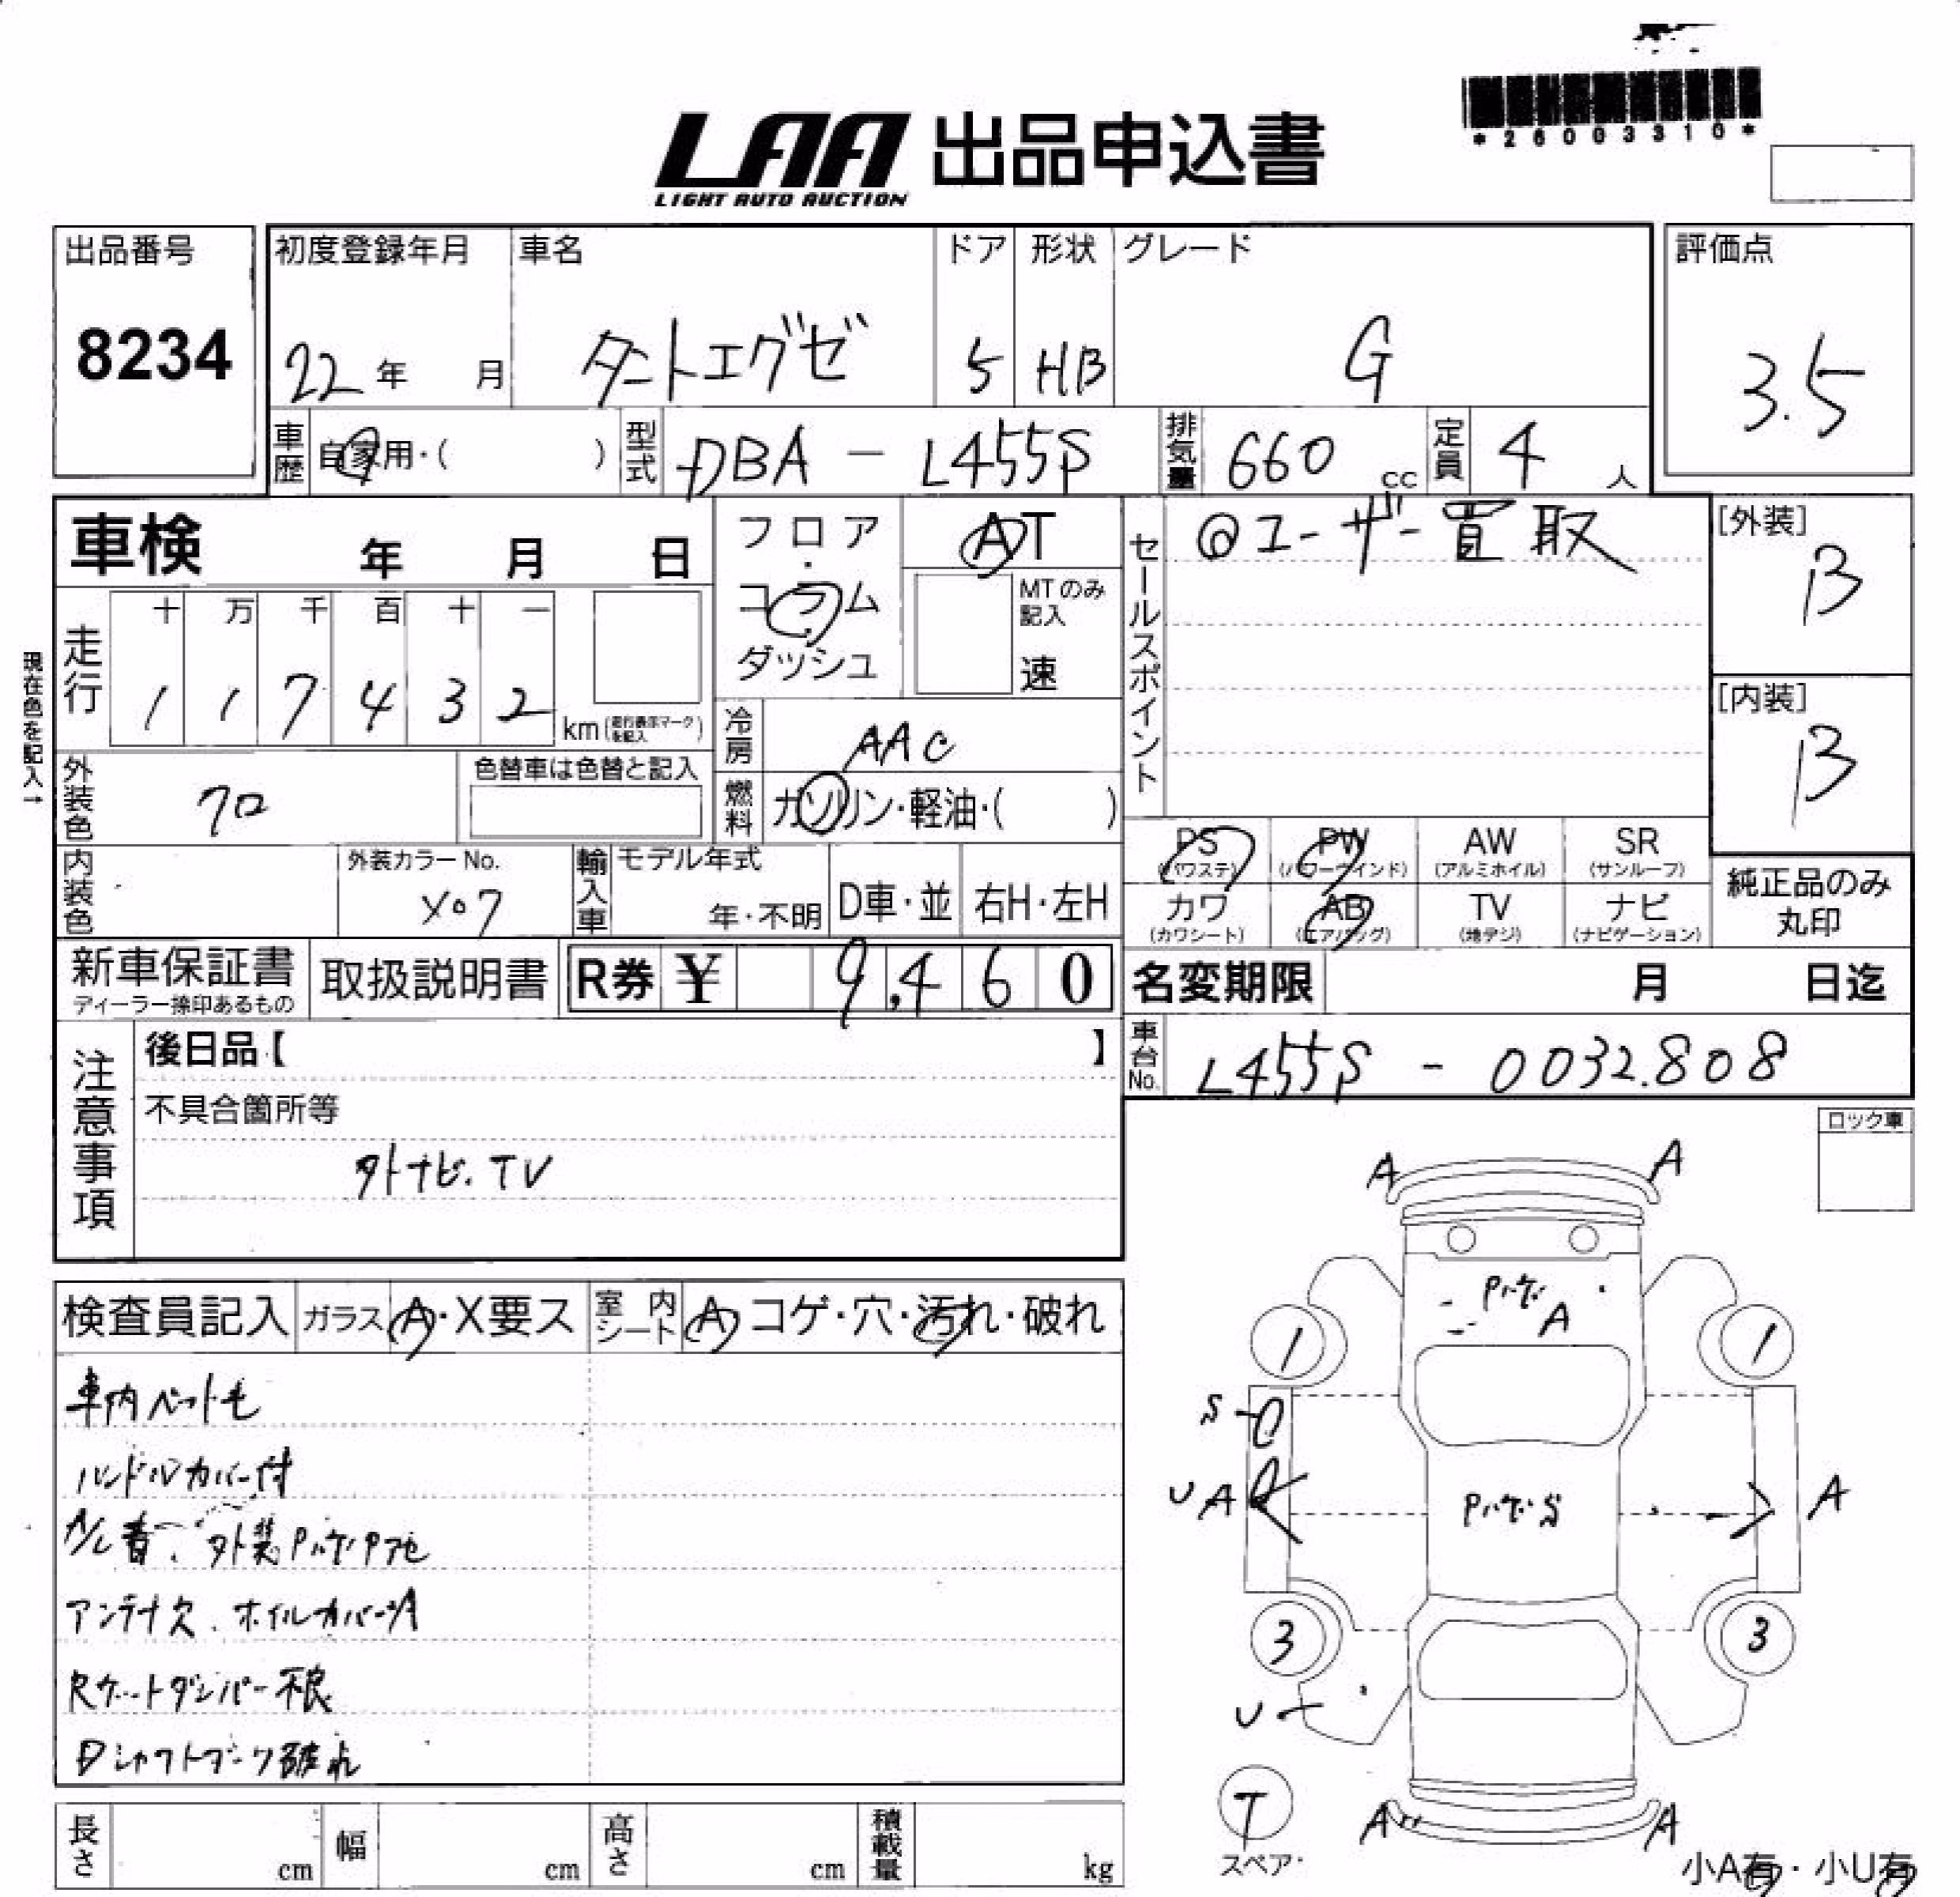 *26003310*
LAA 出品申込書
LIGHT AUTO AUCTION
出品番号
8234
初度登録年月
22年 月
車名
タントエグゼ
ドア
5
形状
HB
グレード
G
評価点
3.5
車歴 自家用・( )
型式 DBA - L455S
排気量 660 cc
定員 4 人
車検 年 月 日
フロア・コラム・ダッシュ
AT
MTのみ記入
速
セールスポイント
@ユーザー買取
[外装]
B
[内装]
B
現在色を記入→
走行
十 万 千 百 十 一
1 1 7 4 3 2
km(走行表示マークを記入)
冷房 AAC
燃料 ガソリン・軽油・( )
外装色 クロ
色替車は色替と記入
内装色
外装カラーNo.
X07
輸入車
モデル年式
年・不明
D車・並
右H・左H
PS
(パワステ)
PW
(パワーウインド)
AW
(アルミホイル)
SR
(サンルーフ)
カワ
(カワシート)
AB
(エアバッグ)
TV
(地デジ)
ナビ
(ナビゲーション)
純正品のみ
丸印
新車保証書
ディーラー捺印あるもの
取扱説明書
R券 ¥ 9,460
名変期限 月 日迄
車台No. L455S - 0032808
注意事項
後日品【 】
不具合箇所等
外ナビ.TV
ロック車
検査員記入
ガラス A・X要ス
室内シート A コゲ・穴・汚れ・破れ
車内ペット毛
ハンドルカバー付
外装Pハゲ Pアセ
アンテナ欠.ホイルカバーA
Rゲートダンパー不良
Dシャフトブーツ破れ
A A
Pハゲ
A
1 1
S
U A A
PハゲS
3 3
U
T
スペア
A A
小A有・小U有
長さ cm
幅 cm
高さ cm
積載量 kg